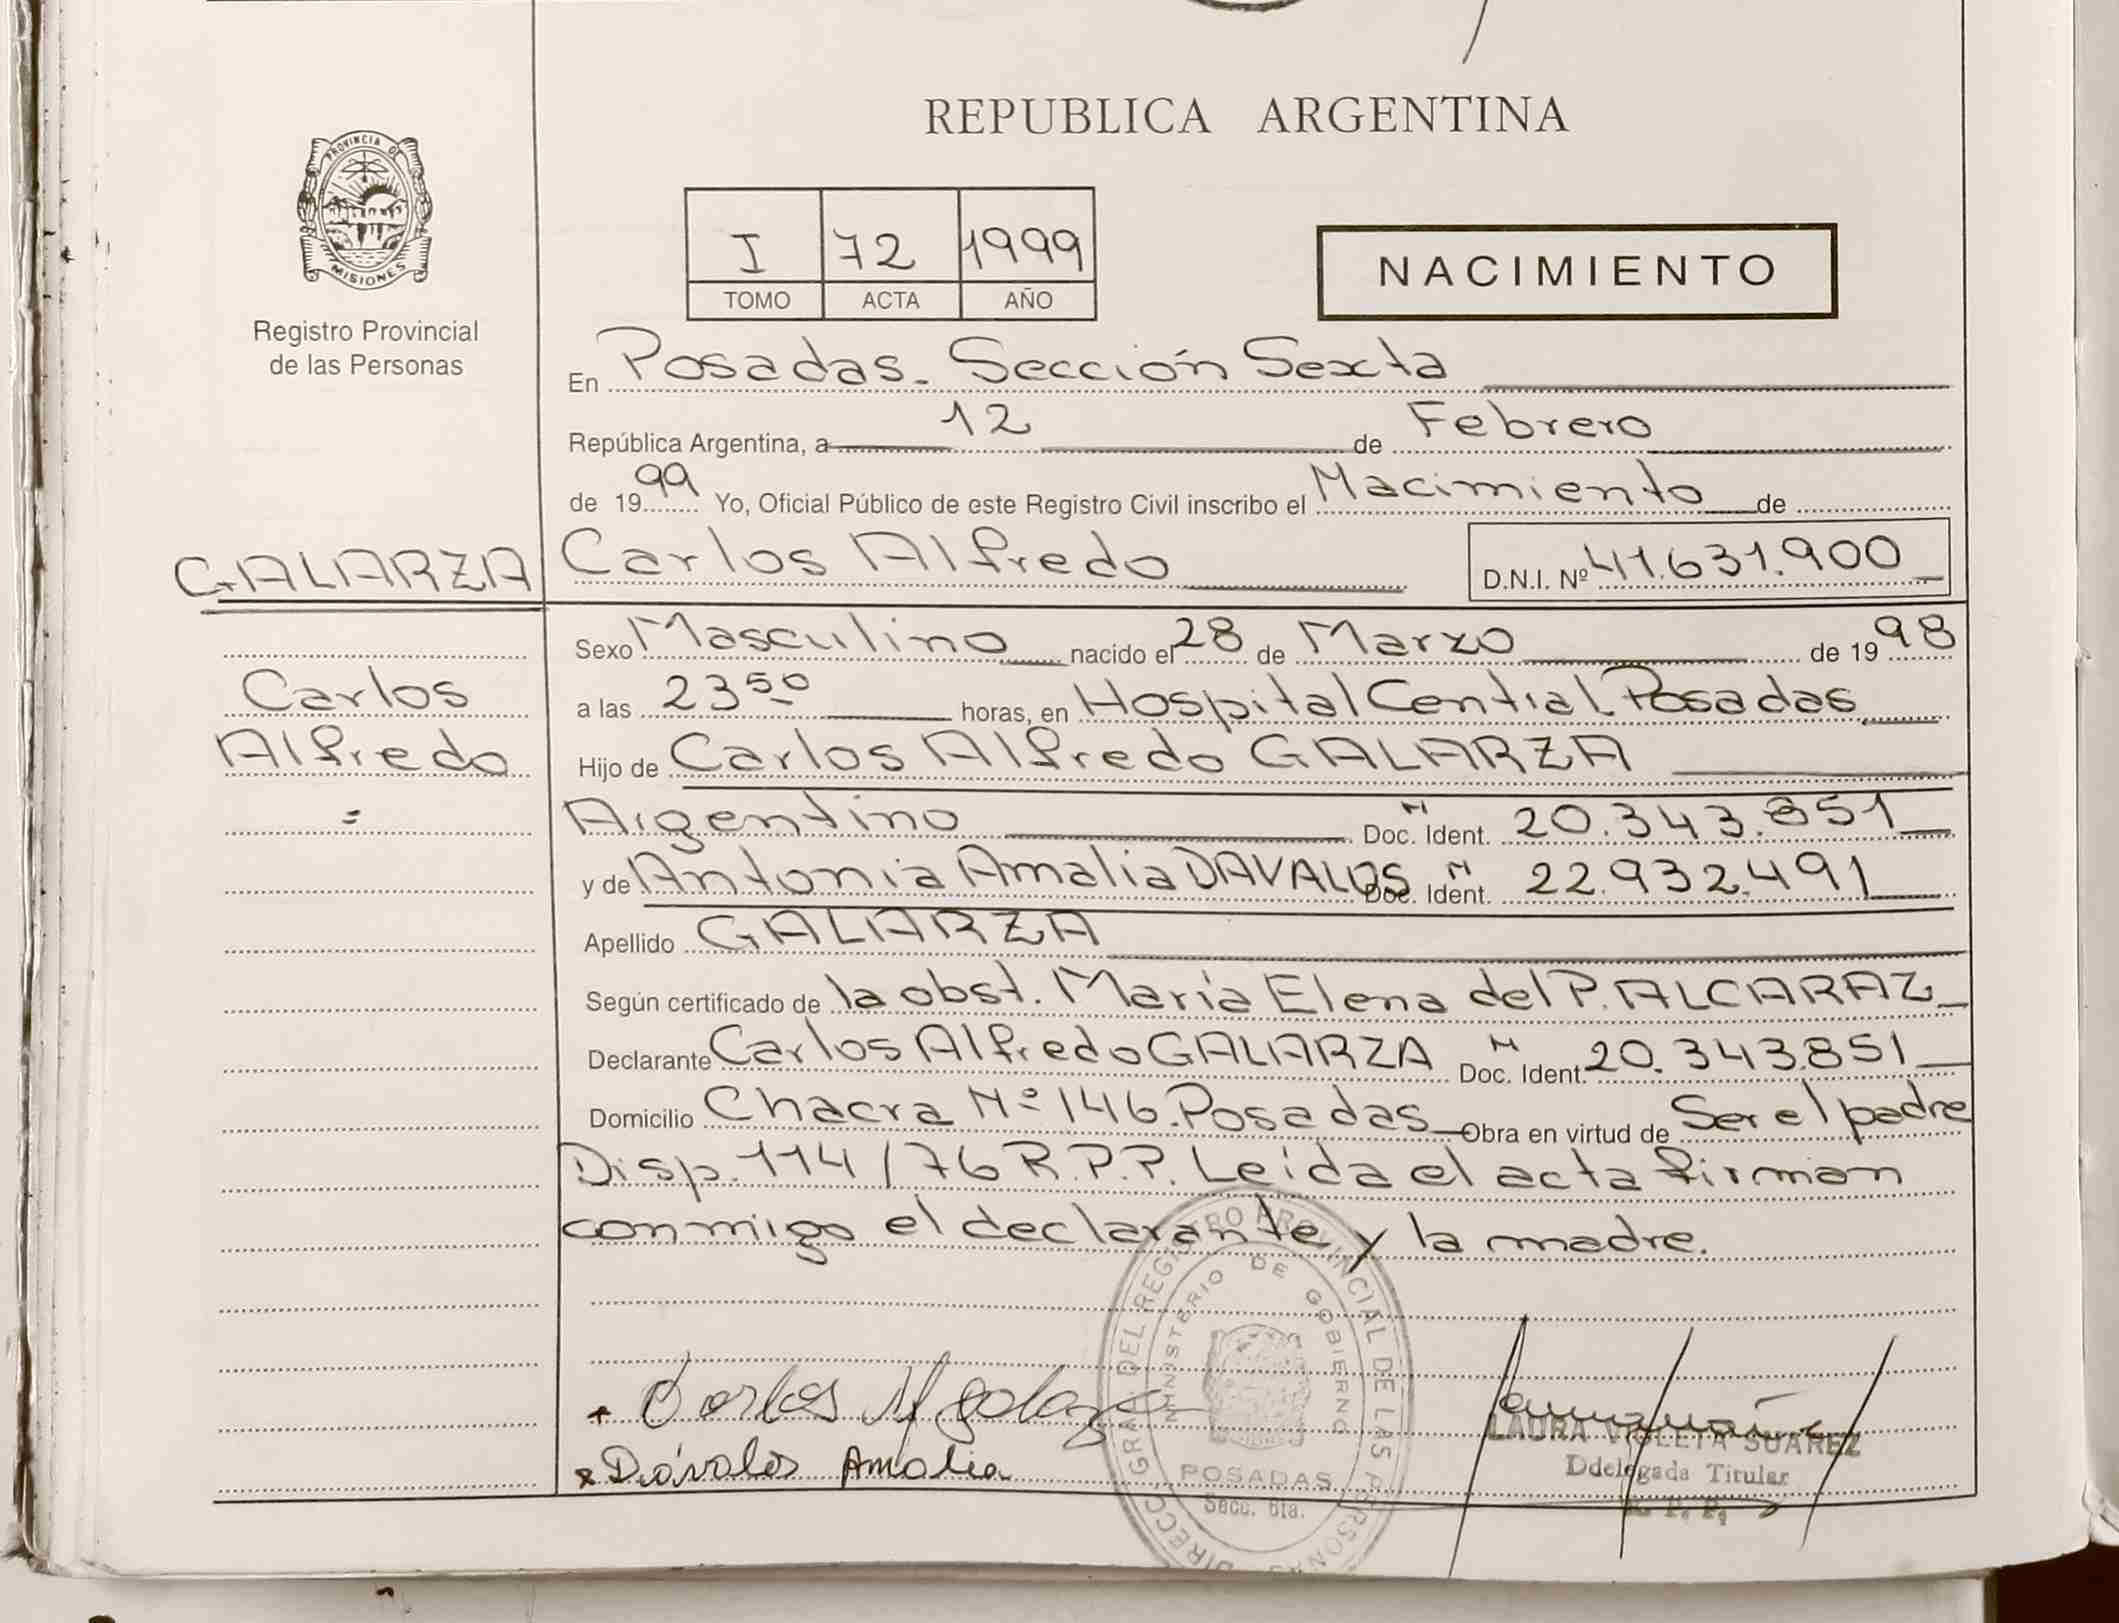 REPUBLICA ARGENTINA
PROVINCIA DE
MISIONES
Registro Provincial
de las Personas
I 72 1999
TOMO ACTA AÑO
NACIMIENTO
En Posadas. Sección Sexta
República Argentina, a 12 de Febrero
de 1999 Yo, Oficial Público de este Registro Civil inscribo el Nacimiento de
GALARZA Carlos Alfredo D.N.I. Nº 41.631.900
Sexo Masculino nacido el 28 de Marzo de 1998
Carlos a las 23⁵⁰ horas, en Hospital Central Posadas
Alfredo Hijo de Carlos Alfredo GALARZA
Argentino Doc. Ident. N 20.343.851
y de Antonia Amalia DAVALOS Doc. Ident. N 22.932.491
Apellido GALARZA
Según certificado de la obst. María Elena del P. ALCARAZ
Declarante Carlos Alfredo GALARZA Doc. Ident. N 20.343.851
Domicilio Chacra Nº 146. Posadas Obra en virtud de Ser el padre
Disp. 114/76 R.P.P. Leída el acta firman
conmigo el declarante y la madre.
DIRECC. GRAL. DEL REGISTRO PROVINCIAL DE LAS PERSONAS
MINISTERIO DE GOBIERNO
POSADAS
Secc. 6ta.
Carlos A galarza
Dávalos Amalia
LAURA VIOLETA SUAREZ
Ddelegada Titular
R. P. P.